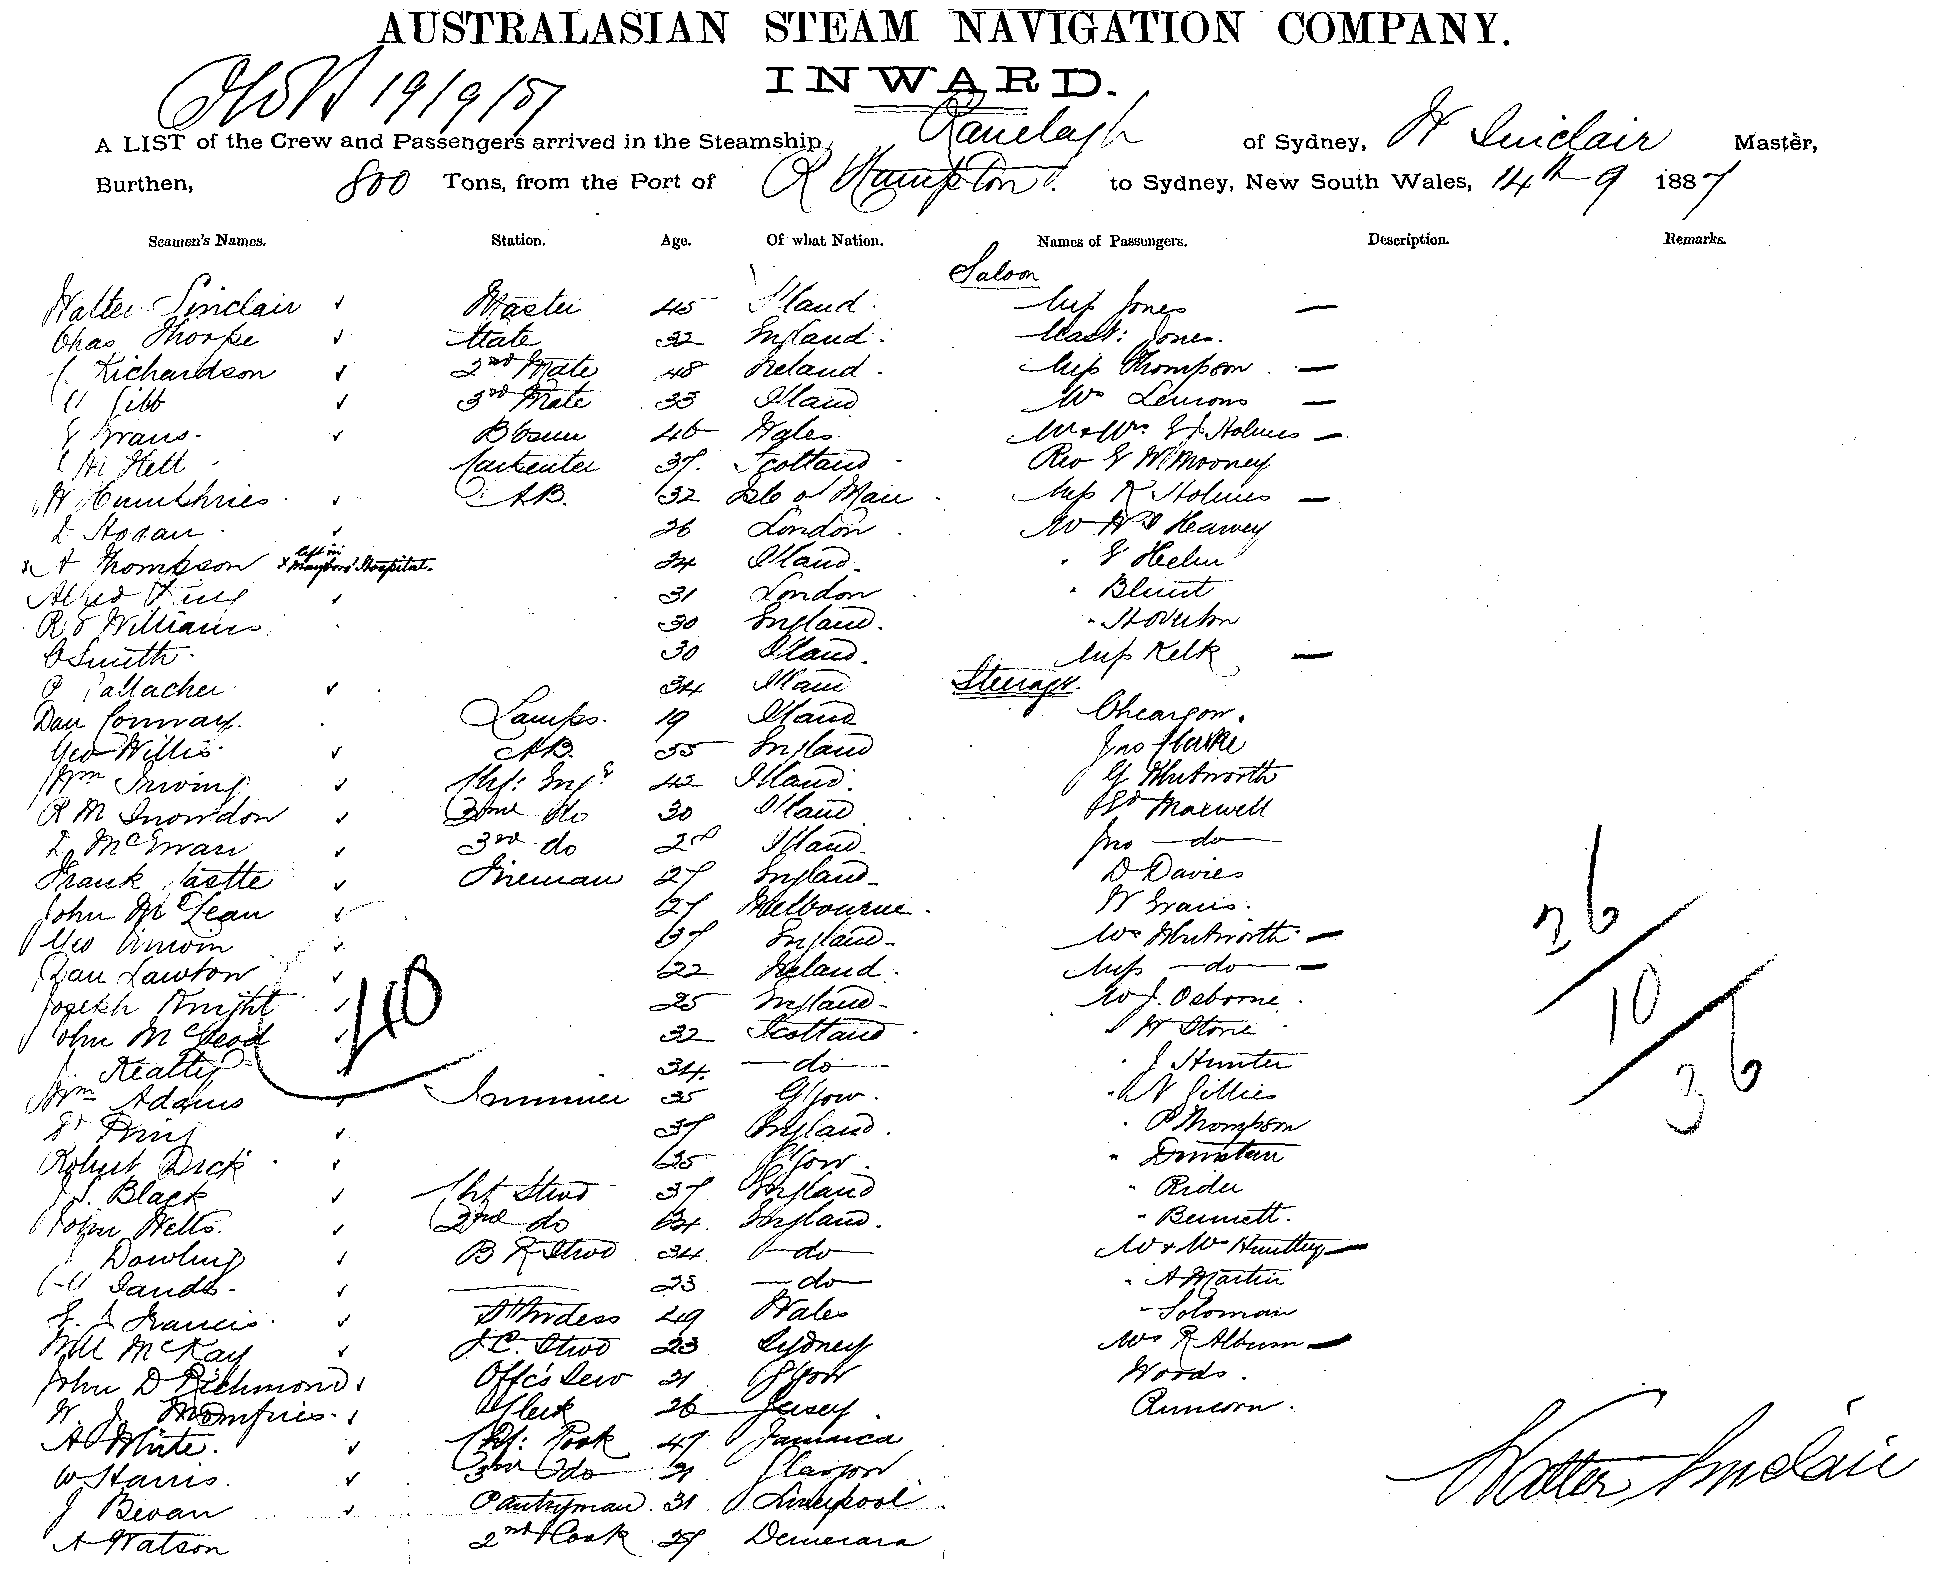 AUSTRALASIAN STEAM NAVIGATION COMPANY.
INWARD.
19/9/87
A LIST of the Crew and Passengers arrived in the Steamship, Ranelagh of Sydney, W Sinclair Master,
Burthen, 800 Tons, from the Port of R Hampton to Sydney, New South Wales, 14th 9 1887
Seamen's Names. Station. Age. Of what Nation. Names of Passengers. Description. Remarks.
Saloon
Walter Sinclair Master 45 Miss Jones —
Chas Thorpe Mate 32 England. Mast: Jones.
Richardson 2nd Mate 48 Ireland. Miss Thompson —
Gibb 3rd Mate 33 Mrs Lemons —
E Evans. Bosun 46 Wales Mr & Mrs E J Holmes —
Hett Carpenter 37. Scotland Rev E W Mooney
W Humphries AB. 32 Isle of Man Miss K Holmes —
Hogan 26 London Mr Hearvey
A Thompson x left in Maryboro' Hospital. 24 " E Helin
Alfred King 31 London " Blunt
R J Williams 30 England. " Hoverton
C Smith 30 Miss Kelk —
Steerage.
P Gallacher 34
Dan Conway. Lamps. 19 Chearson.
Geo Willis AB. 35 England Jno Clarke
Wm Irving Chf: Engr 42 G Whitworth
R M Snowdon 2nd do 30 Maxwell
McEwan 3rd do 28 Jno —do—
Frank Castle Fireman 27 England D Davies
John McLean 27 Melbourne. W Evans.
Geo 37 England Mrs Whitworth —
Dan Lawton 22 Ireland. Miss —do— —
Joseph Knight 25 England Mr J. Osborne.
John McLeod 32 Scotland " W Storie
Kealty 34. —do— " J Hunter
Wm Adams Trimmer 35 G'gow. " N Gillies
King 37 England. " P Thompson
Robert Dick 25 G'gow. " Dunstan
J. Black Chf Stwd 37 England " Rider
John Wells. 2nd do 34. England. " Bennett.
J Dowling B R Stwd 34 —do— Mr & Mrs Huntley —
Sands. —— 23 —do— " A Martin
E. J Francis. Stwdess 49 Wales " Soloman
Will McKay F.C. Stwd 23 Sydney Mrs R Album —
John D Richmond Offc's Serv 21 G'gow Woods.
W. J. Momfries. Clerk 26 Jersey. Runcorn.
A White. Chf: Cook 47 Jamaica
W Harris. 3rd do 21 Glasgow
J Bevan Pantryman 31 Liverpool
A Watson 2nd Cook 29 Demerara
40
26
10
36
Walter Sinclair